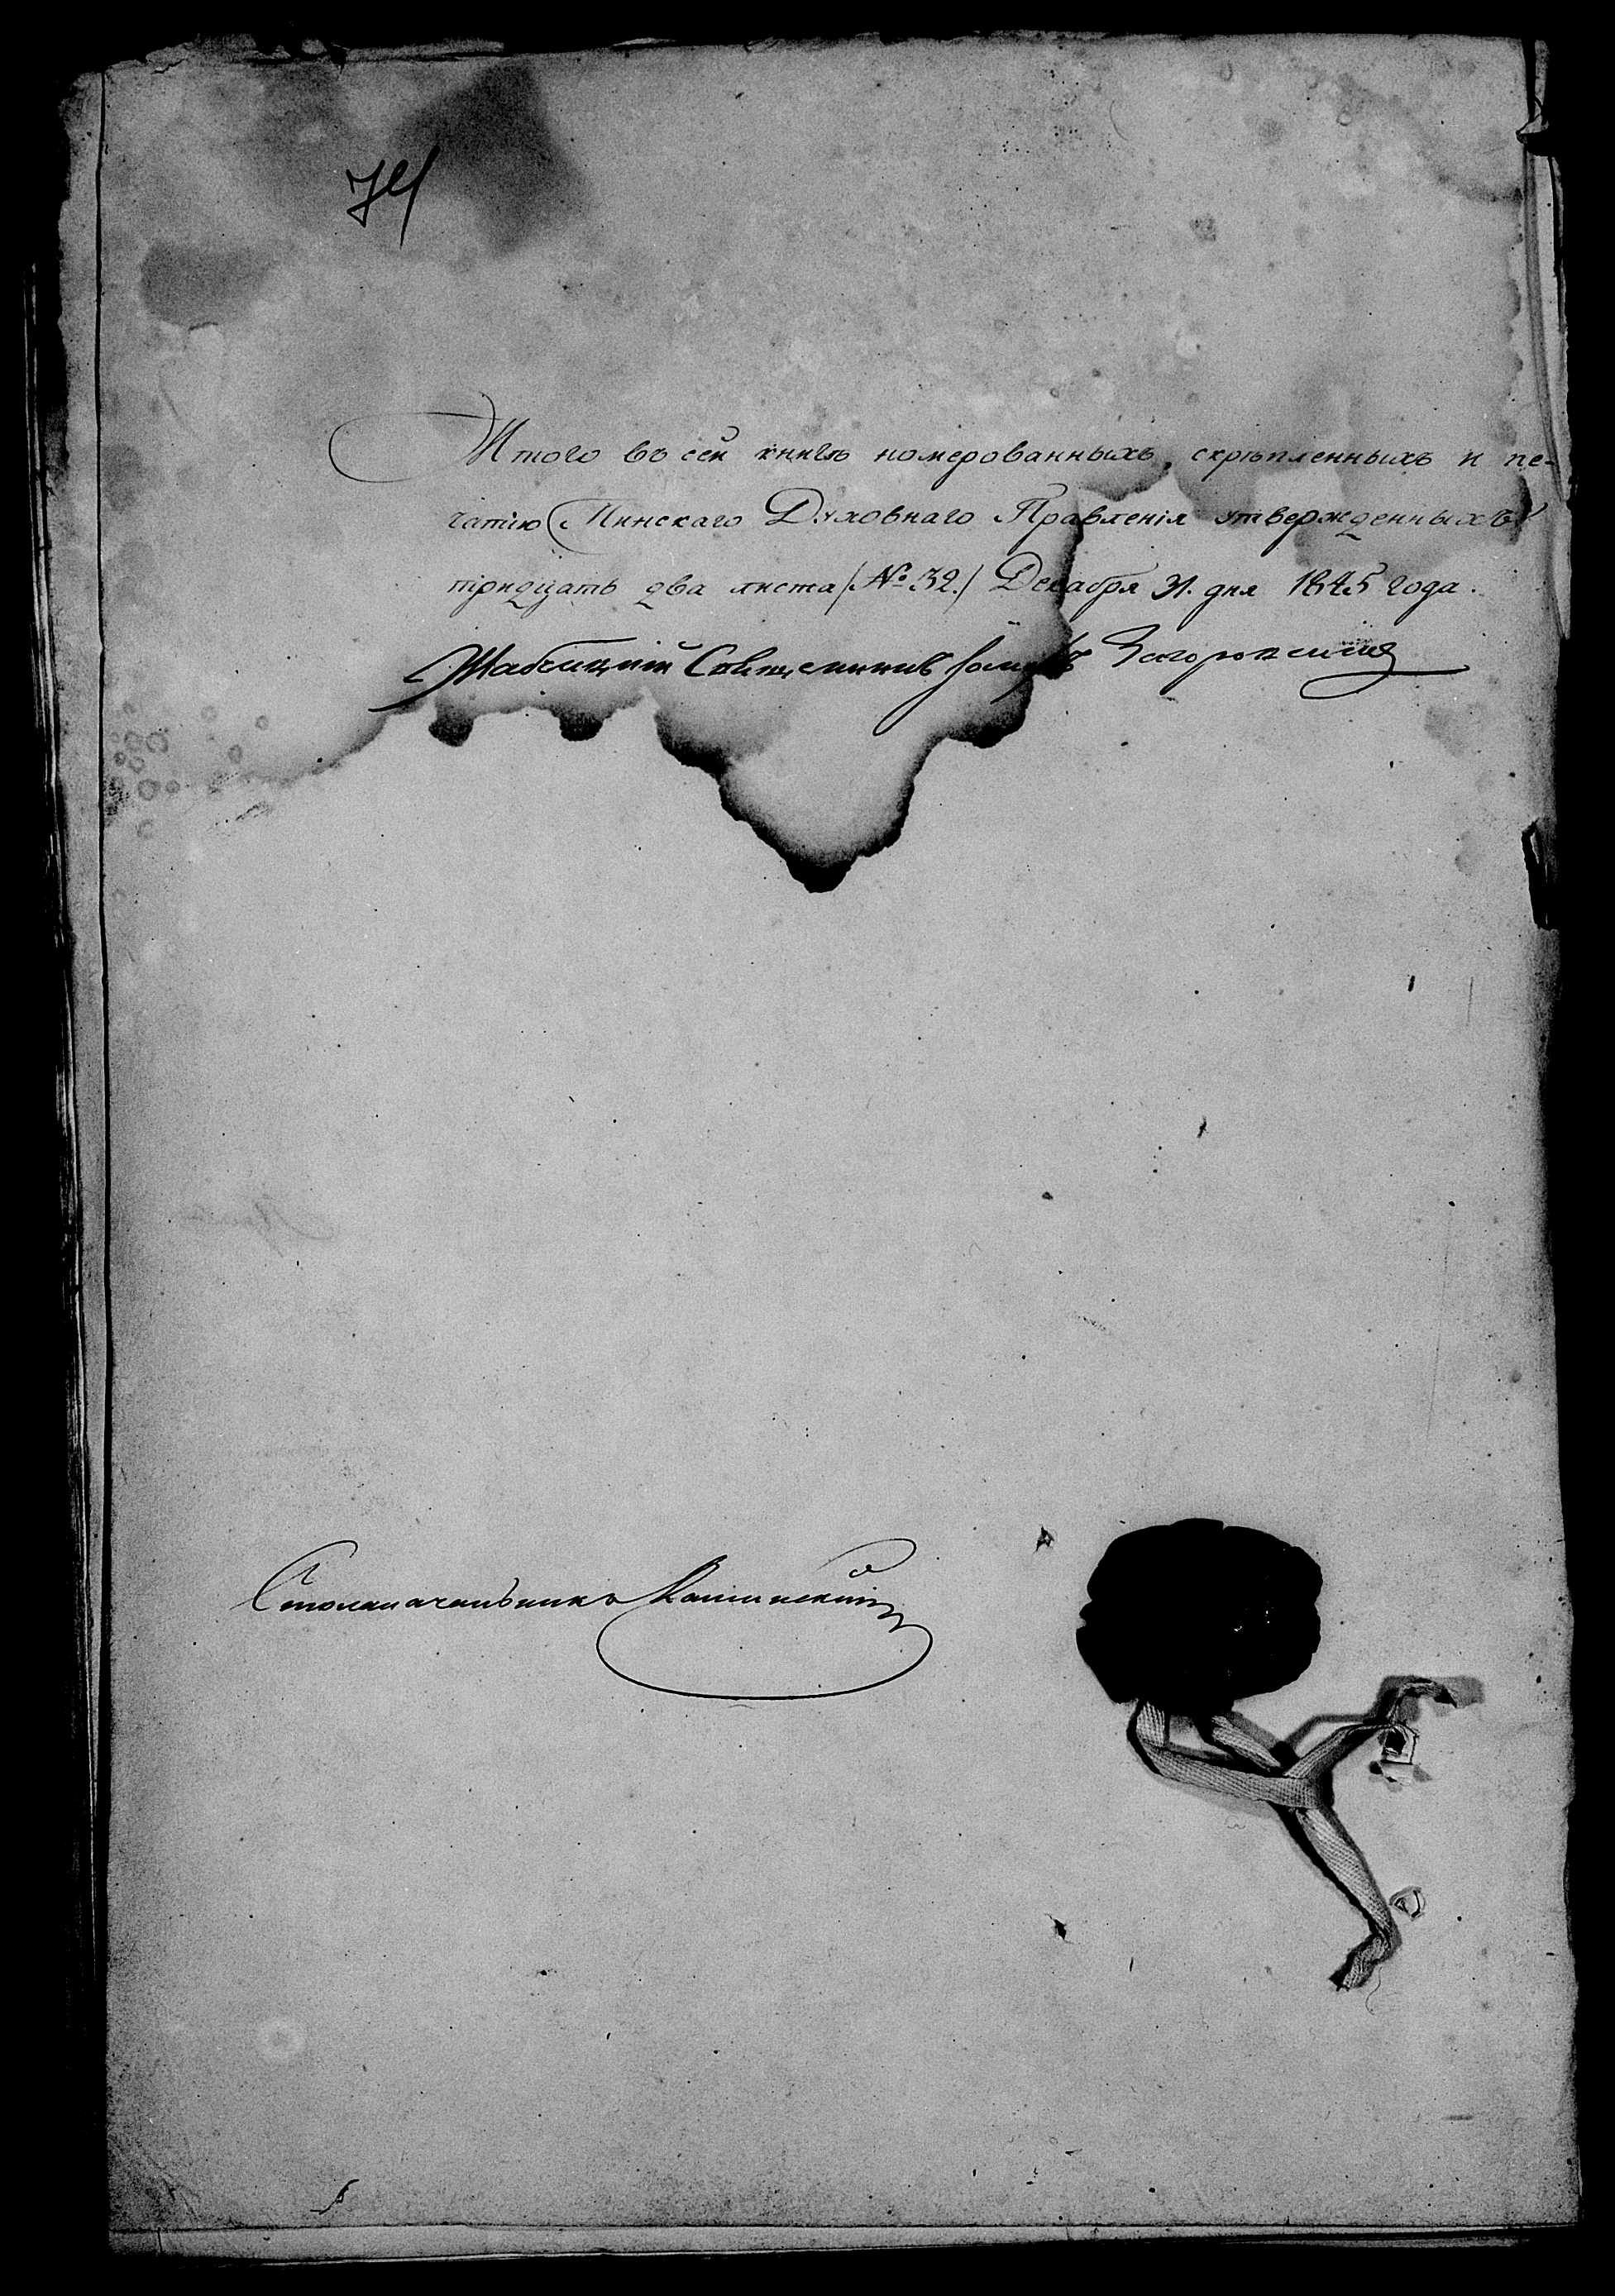 74
Итого въ сей книгѣ номерованныхъ, скрѣпленныхъ и пе-
чатію Минскаго Духовнаго Правленія утвержденныхъ
тридцать два листа (№ 32.) Декабря 31. дня 1845 года.
Священникъ
Столоначальникъ